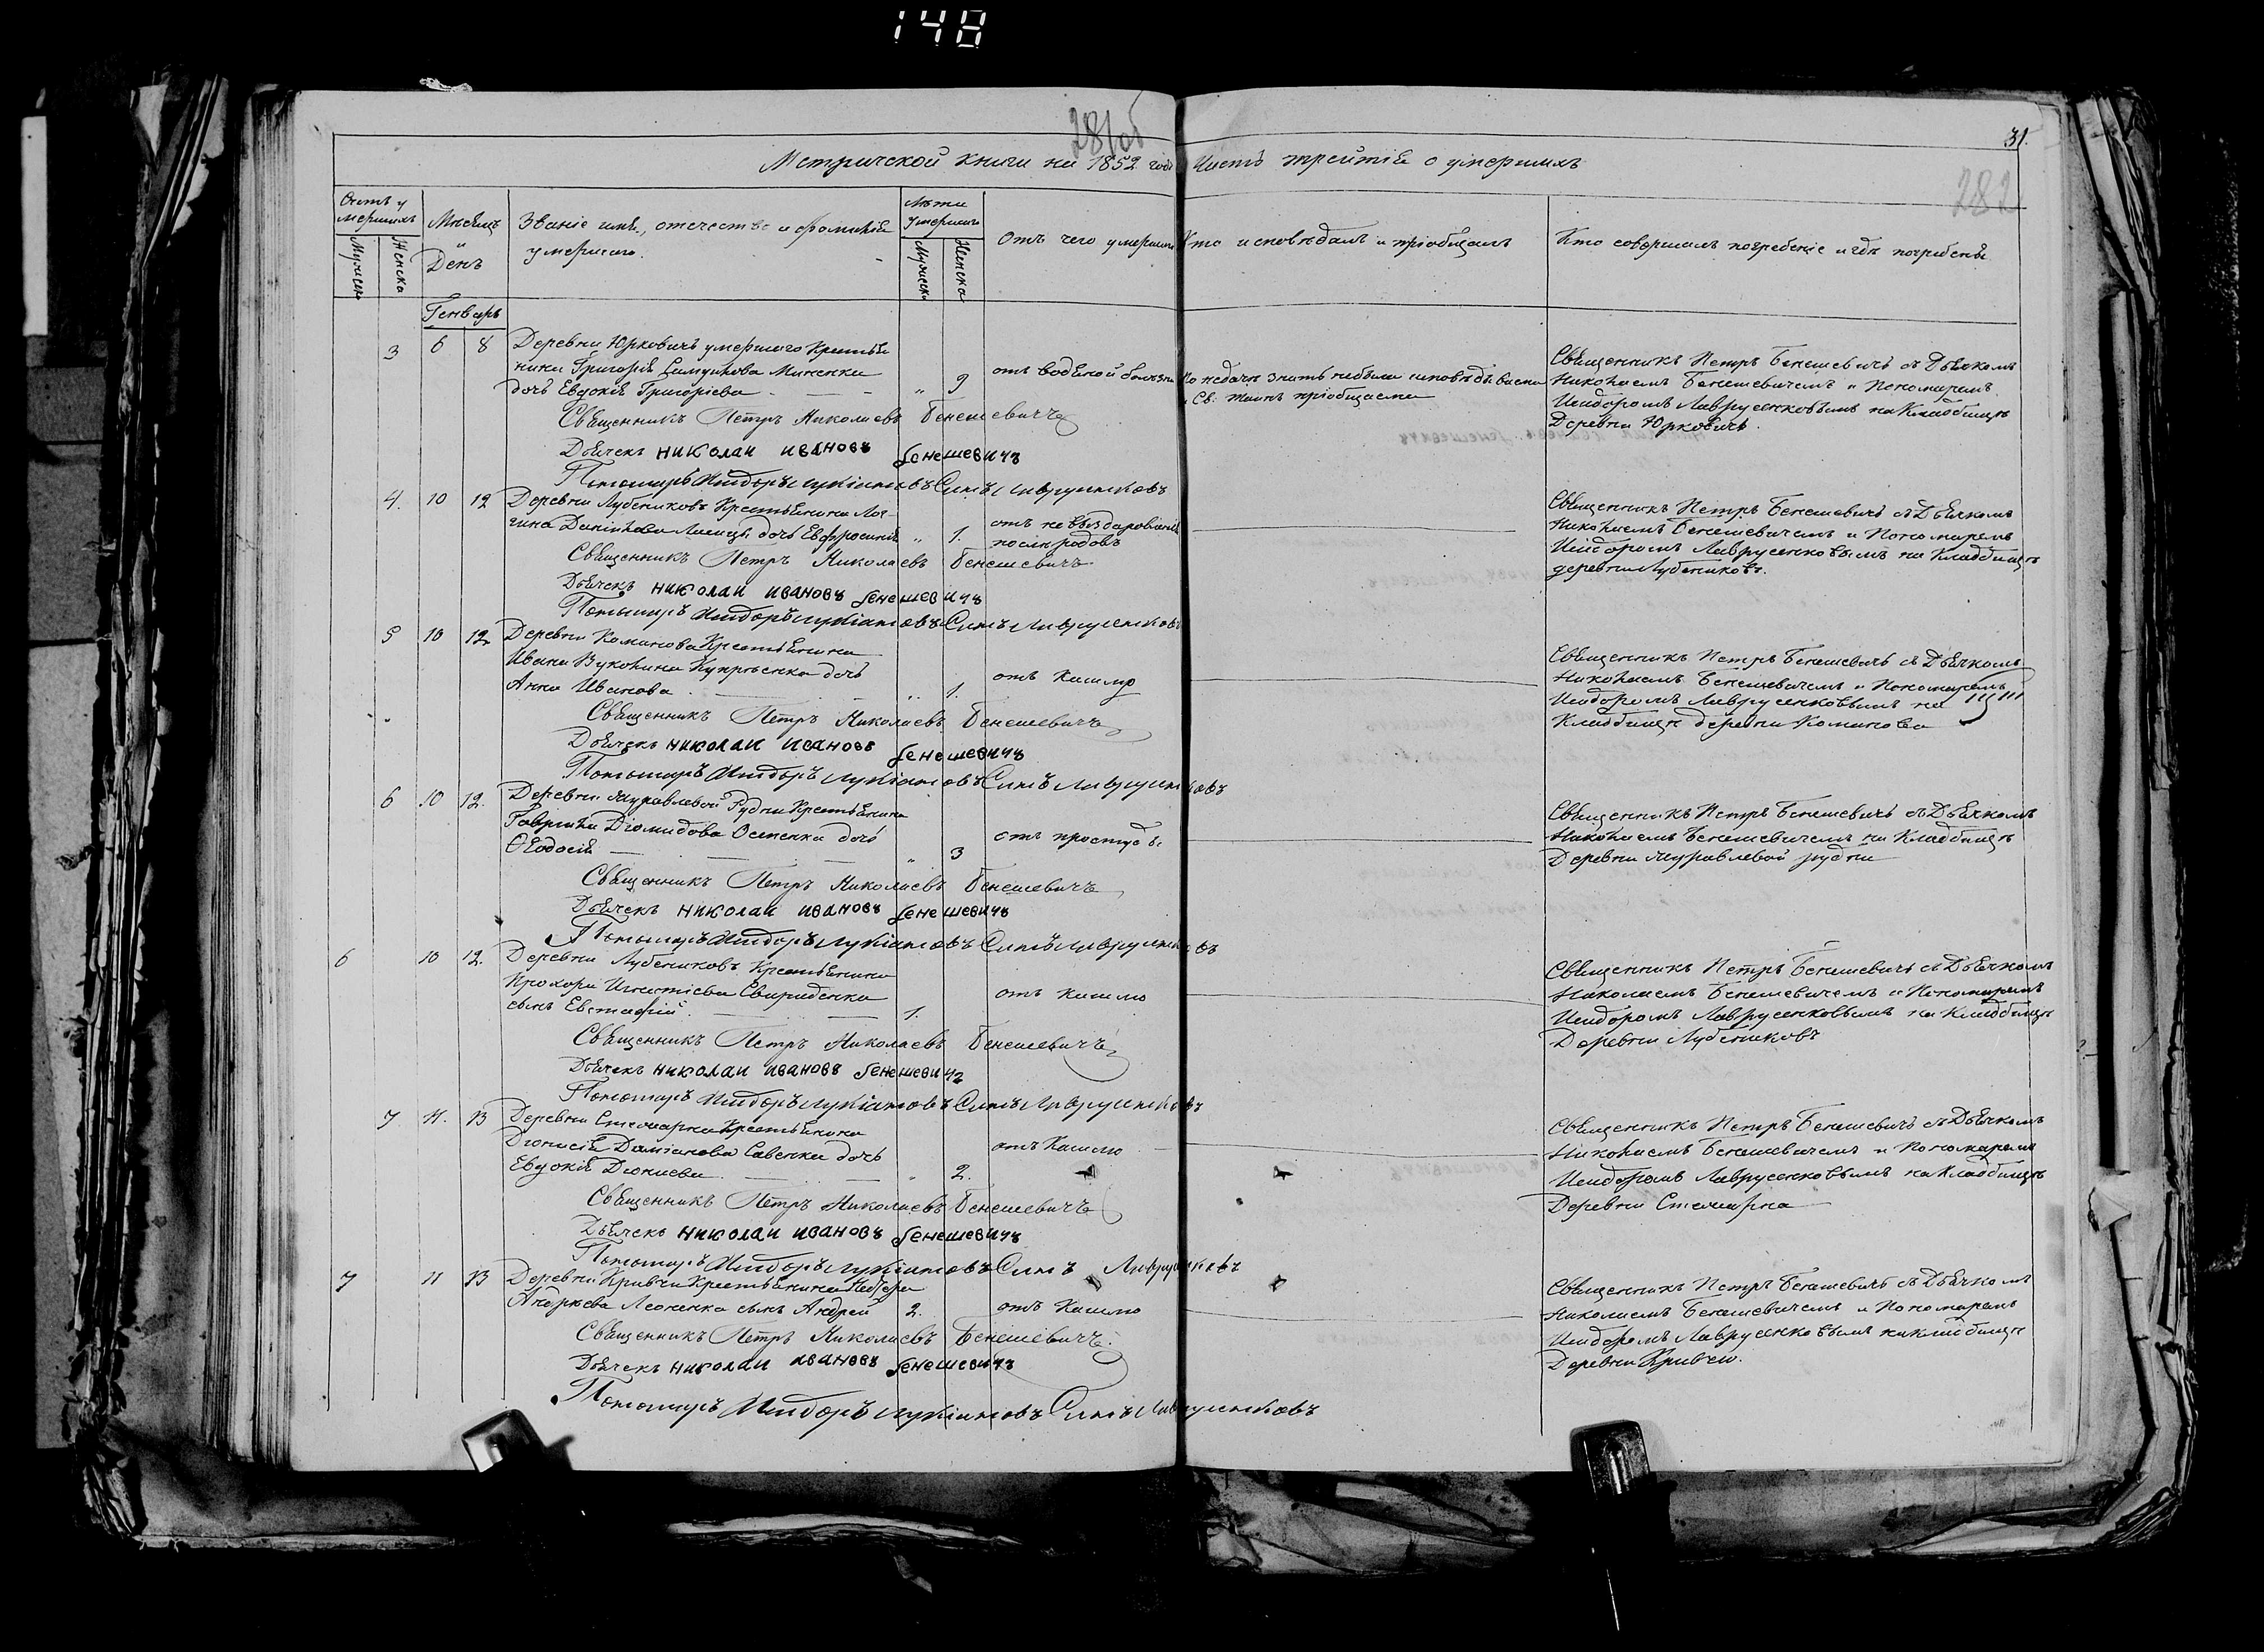 148
281об
31.
282
Метрической книги на 1852 годъ Часть третія о умершихъ
Счетъ у
мершихъ
Мужеска
Женска
Мѣсяцъ
и
День
Званіе имя, отечество и фамилія
умершаго.
Лѣта
умершаго
Мужеска
Женска
Отъ чего умершаго
Кто исповѣдалъ и пріобщалъ
Кто совершалъ погребеніе и гдѣ погребены
Генварь
3 6 8 Деревни Юрковичъ умершаго Крестья
нина Григорія Миненка
дочь Евдокія Григоріева " 9
отъ водяной болѣзни
По недачи знать небыла исповѣдываема
и Св. таинъ пріобщаема
Священникъ Петръ Бенешевичъ съ Дьячкомъ
Николаемъ Бенешевичемъ и Пономаремъ
Исидоромъ Лаврусенковымъ на Кладбищѣ
Деревни Юрковичъ.
Священникъ Петръ Николаевъ Бенешевичъ
Дьячекъ николаи ивановъ бенешевичъ
Пономаръ Исидоръ Лукіановъ Синъ Лаврусенковъ
4. 10 12 Деревни Лубениковъ Крестьянина Лог
гина Данилова дочь Евфросинія " 1.
отъ не выздаровленія
послѣ родовъ
Священникъ Петръ Бенешевичъ съ Дьячкомъ
Николаемъ Бенешевичемъ и Пономаремъ
Исидоромъ Лаврусенковымъ на Кладбищѣ
деревни Лубениковъ.
Священникъ Петръ Николаевъ Бенешевичъ
Дьячекъ николаи ивановъ бенешевичъ
Пономаръ Исидоръ Лукіановъ Синъ Лаврусенковъ
5 10 12 Деревни Каманова Крестьянина
Ивана Вуколина Купрѣенка дочь
Анна Иванова " 1.
отъ кашлю
Священникъ Петръ Бенешевичъ съ Дьячкомъ
Николаемъ Бенешевичемъ и Пономаремъ
Исидоромъ Лаврусенковымъ на
Кладбищѣ деревни Каманова
Священникъ Петръ Николаевъ Бенешевичъ
Дьячекъ николаи ивановъ бенешевичъ
Пономаръ Исидоръ Лукіановъ Синъ Лаврусенковъ
6 10 12. Деревни Муравлевой Рудни Крестьянина
Гавріила Діомидова Осипенка дочь
Ѳеодосія " 3
отъ простуды
Священникъ Петръ Бенешевичъ съ Дьячкомъ
Николаемъ Бенешевичемъ на Кладбищѣ
Деревни Муравлевой рудни
Священникъ Петръ Николаевъ Бенешевичъ
Дьячекъ николаи ивановъ бенешевичъ
Пономаръ Исидоръ Лукіановъ Синъ Лаврусенковъ
6 10 12. Деревни Лубениковъ Крестьянина
Прохора Игнатіева Свириденка
сынъ Евстафій. 1.
отъ кашлю
Священникъ Петръ Бенешевичъ съ Дьячкомъ
Николаемъ Бенешевичемъ и Пономаремъ
Исидоромъ Лаврусенковымъ на Кладбищѣ
Деревни Лубениковъ
Священникъ Петръ Николаевъ Бенешевичъ
Дьячекъ николаи ивановъ бенешевичъ
Пономаръ Исидоръ Лукіановъ Синъ Лаврусенковъ
7 11. 13 Деревни Крестьянина
Діонисія Даміанова Савенка дочь
Евдокія Діонисева " 2.
отъ Кашлю
Священникъ Петръ Бенешевичъ съ Дьячкомъ
Николаемъ Бенешевичемъ и Пономаремъ
Исидоромъ Лаврусенковымъ на Кладбищѣ
Деревни
Священникъ Петръ Николаевъ Бенешевичъ
Дьячекъ николаи ивановъ бенешевичъ
Пономаръ Исидоръ Лукіановъ Синъ Лаврусенковъ
7 11 13 Деревни Кривчи Крестьянина
Андреева Леоненка сынъ Андрей 2.
отъ Кашлю
Священникъ Петръ Бенешевичъ съ Дьячкомъ
Николаемъ Бенешевичемъ и Пономаремъ
Исидоромъ Лаврусенковымъ на кладбищѣ
Деревни Кривчи.
Священникъ Петръ Николаевъ Бенешевичъ
Дьячекъ николаи ивановъ бенешевичъ
Пономаръ Исидоръ Лукіановъ Синъ Лаврусенковъ